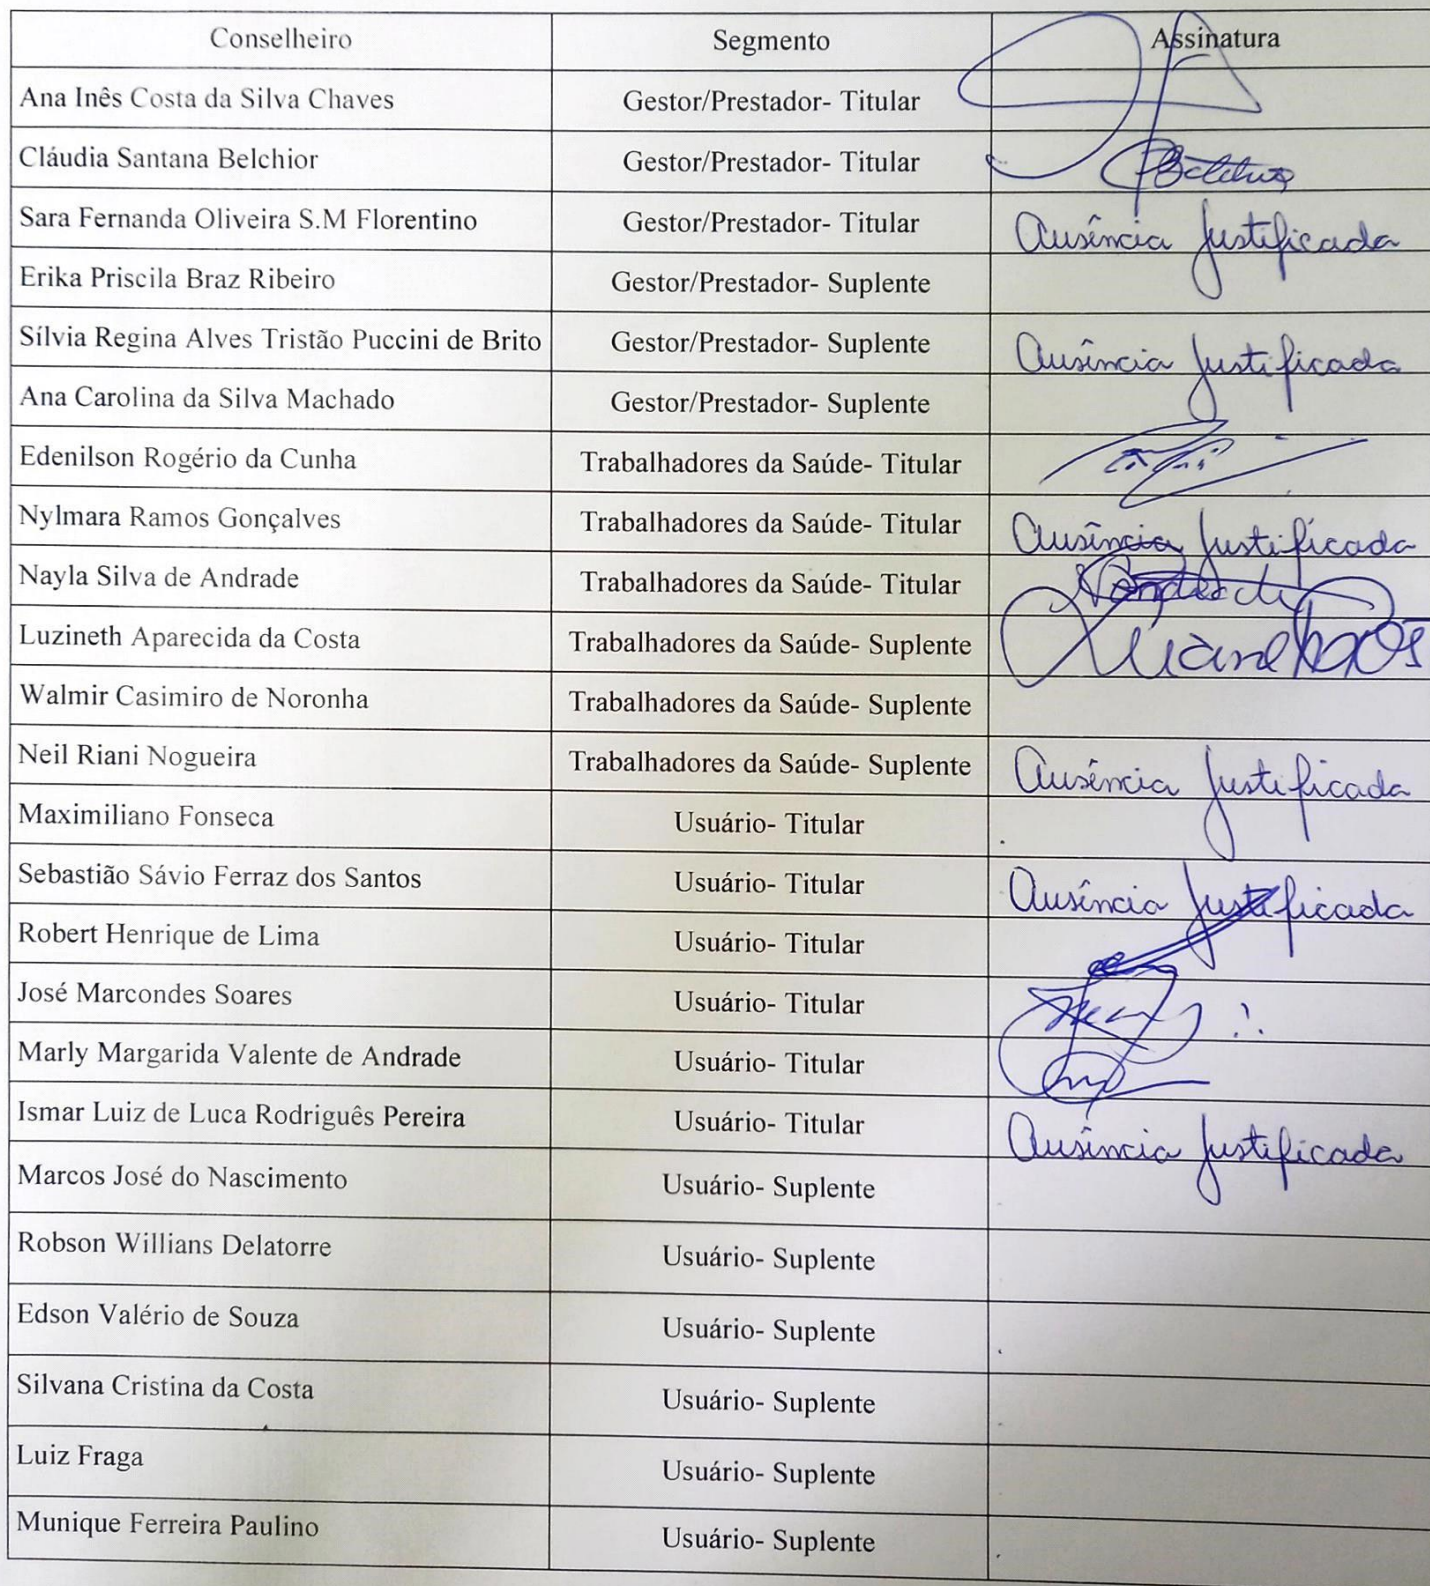 Conselheiro Segmento Assinatura
Ana Inês Costa da Silva Chaves Gestor/Prestador- Titular
Cláudia Santana Belchior Gestor/Prestador- Titular
Sara Fernanda Oliveira S.M Florentino Gestor/Prestador- Titular Ausência Justificada
Erika Priscila Braz Ribeiro Gestor/Prestador- Suplente
Sílvia Regina Alves Tristão Puccini de Brito Gestor/Prestador- Suplente Ausência Justificada
Ana Carolina da Silva Machado Gestor/Prestador- Suplente
Edenilson Rogério da Cunha Trabalhadores da Saúde- Titular
Nylmara Ramos Gonçalves Trabalhadores da Saúde- Titular Ausência Justificada
Nayla Silva de Andrade Trabalhadores da Saúde- Titular
Luzineth Aparecida da Costa Trabalhadores da Saúde- Suplente
Walmir Casimiro de Noronha Trabalhadores da Saúde- Suplente
Neil Riani Nogueira Trabalhadores da Saúde- Suplente Ausência Justificada
Maximiliano Fonseca Usuário- Titular
Sebastião Sávio Ferraz dos Santos Usuário- Titular Ausência Justificada
Robert Henrique de Lima Usuário- Titular
José Marcondes Soares Usuário- Titular
Marly Margarida Valente de Andrade Usuário- Titular
Ismar Luiz de Luca Rodriguês Pereira Usuário- Titular Ausência Justificada
Marcos José do Nascimento Usuário- Suplente
Robson Willians Delatorre Usuário- Suplente
Edson Valério de Souza Usuário- Suplente
Silvana Cristina da Costa Usuário- Suplente
Luiz Fraga Usuário- Suplente
Munique Ferreira Paulino Usuário- Suplente